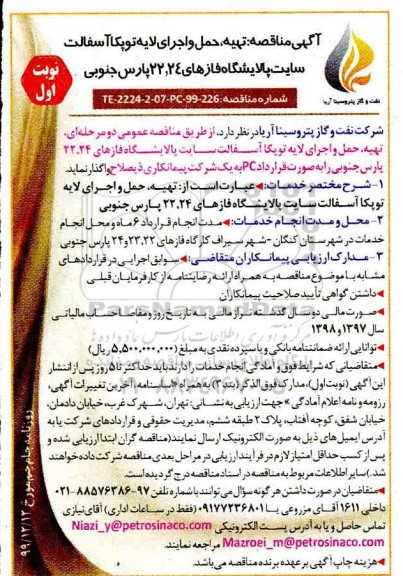 آگهی مناقصه: تهیه، حمل و اجرای لایه توپکا آسفالت
سایت پالایشگاه فازهای ۲۲,۲۴ پارس جنوبی
نوبت
اول
نفت و گاز پتروسینا آریا
شماره مناقصه: TE-2224-2-07-PC-99-226
شرکت نفت و گاز پتروسینا آریا در نظر دارد، از طریق مناقصه عمومی دو مرحله‌ای،
تهیه، حمل و اجرای لایه توپکا آسفالت سایت پالایشگاه فازهای ۲۲,۲۴
پارس جنوبی را به صورت قرارداد PC به یک شرکت پیمانکاری ذیصلاح واگذار نماید.
۱- شرح مختصر خدمات: عبارت است از: تهیه، حمل و اجرای لایه
توپکا آسفالت سایت پالایشگاه فازهای ۲۲,۲۴ پارس جنوبی
۲- محل و مدت انجام خدمات: مدت انجام قرارداد ۶ ماه و محل انجام
خدمات در شهرستان کنگان - شهر سیراف کارگاه فازهای ۲۲,۲۳و۲۴ پارس جنوبی
۳- مدارک ارزیابی پیمانکاران متقاضی: سوابق اجرایی در قراردادهای
مشابه با موضوع مناقصه به همراه ارائه رضایتنامه از کارفرمایان قبلی
داشتن گواهی تأیید صلاحیت پیمانکاران
صورت مالی دو سال گذشته، تراز مالی سه ماه تاریخ روز و مفاصا حساب مالیاتی
سال ۱۳۹۷ و ۱۳۹۸
توانایی ارائه ضمانتنامه بانکی و یا سپرده نقدی به مبلغ (۵,۵۰۰,۰۰۰,۰۰۰ ریال)
متقاضیانی که شرایط فوق و آمادگی انجام خدمات را دارند باید حداکثر تا ۵ روز پس از انتشار
این آگهی (نوبت اول)، مدارک فوق الذکر (بند ۳) به همراه اساسنامه و آخرین تغییرات آگهی،
رزومه و نامه اعلام آمادگی جهت ارزیابی به نشانی: تهران، شهرک غرب، خیابان دادمان،
خیابان شفق، کوچه آفتاب، پلاک ۲ طبقه ششم، مدیریت حقوقی و قراردادهای شرکت یا به
آدرس ایمیل‌های ذیل به صورت الکترونیک ارسال نمایند (مناقصه گران ابتدا ارزیابی شده و
پس از کسب حداقل امتیاز لازم در فرآیند ارزیابی در مراحل بعدی مناقصه شرکت داده خواهند
شد.) سایر اطلاعات مربوط به مناقصه در اسناد مناقصه درج گردیده است.
متقاضیان در صورت داشتن هر گونه سؤال می‌توانند با شماره تلفن ۹۷-۸۸۵۷۶۳۸۶-۰۲۱
داخلی ۱۶۱۱ آقای مزروعی یا ۰۹۱۷۷۲۳۶۸۰۱ (فقط در ساعات اداری) آقای نیازی
تماس حاصل و یا به آدرس پست الکترونیکی Niazi_y@petrosinaco.com
Mazroei_m@petrosinaco.com مراجعه نمایند.
هزینه چاپ آگهی بر عهده برنده مناقصه می‌باشد.
روزنامه جام جم مورخ ۹۹/۱۲/۱۲